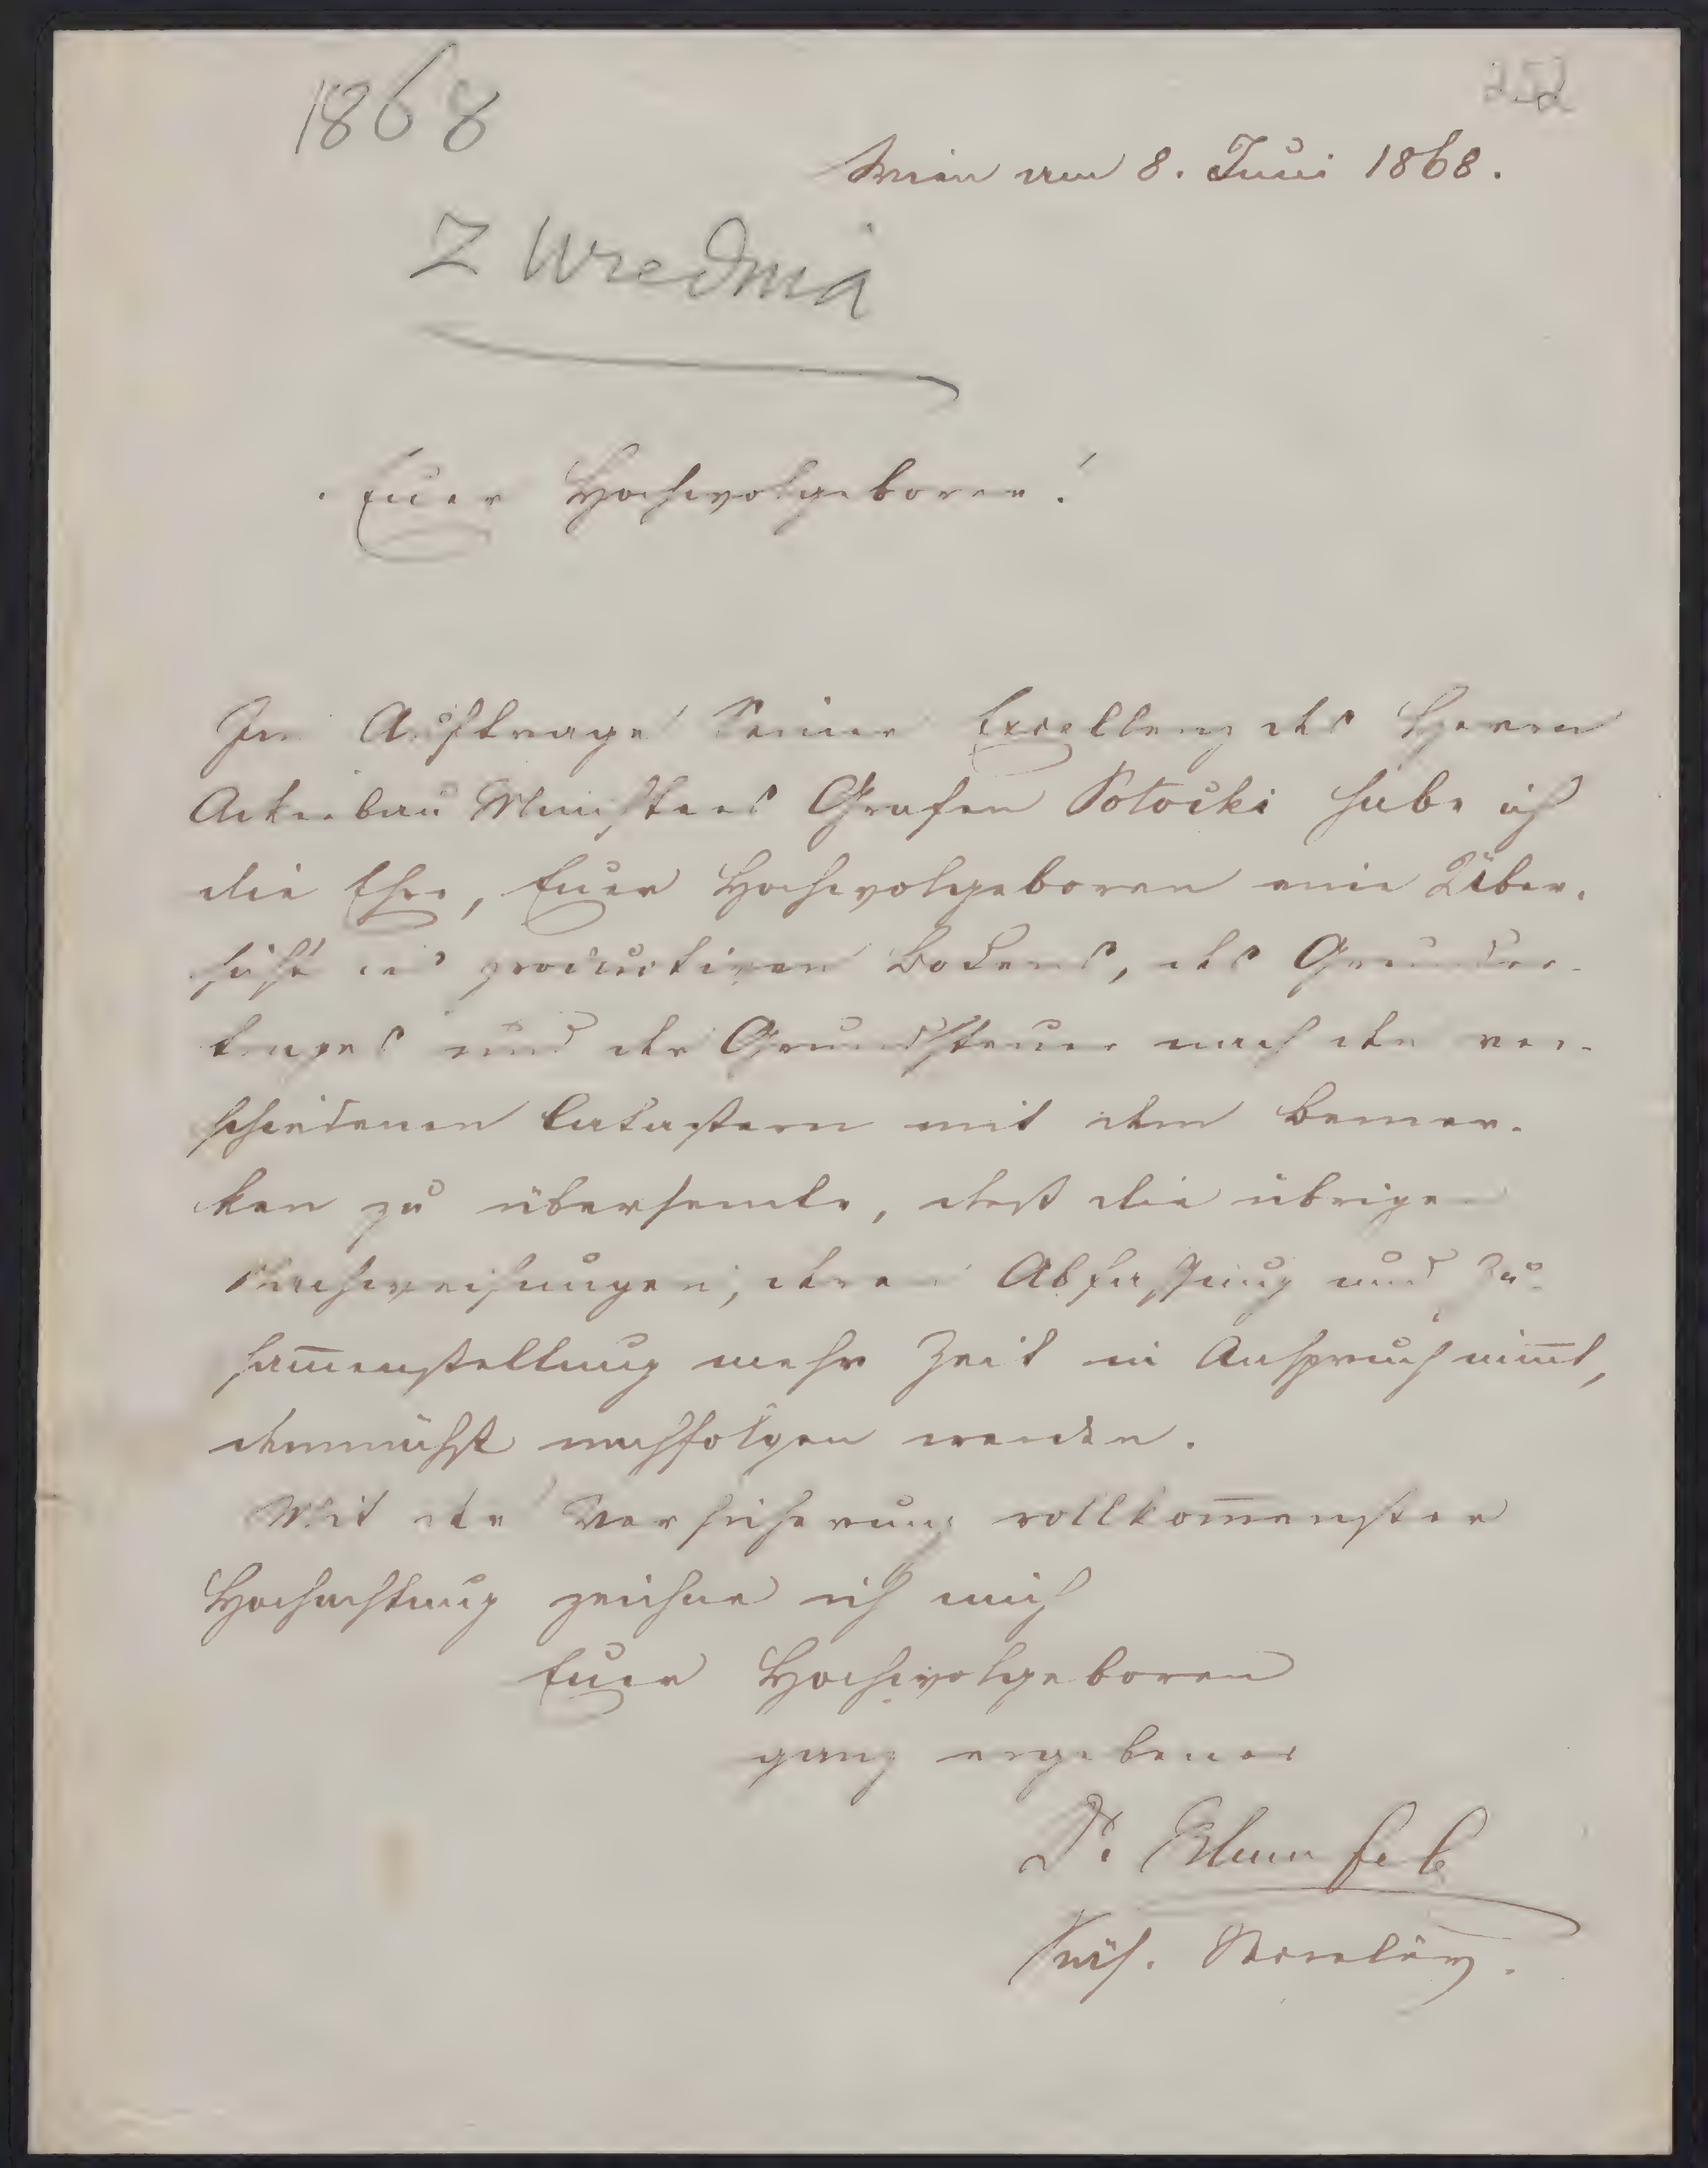 1868
252
Wien am 8. Juni 1868.
Z Wrednia
Euer Hochwolgeboren!
Im Auftrage Seiner Excellenz des Herrn
Ackerbau Ministers Grafen Potocki habe ich
die Ehre, Euer Hochwolgeboren eine Über-
sicht des productiven Bodens, des Grunder-
trages und der Grundsteuer nach den ver-
schiedenen Catastern mit dem Bemer-
ken zu übersenden, daß die übrigen
Nachweisungen, deren Abfassung und Zu-
sam̅enstellung mehr Zeit in Anspruch nim̅t,
demnächst nachfolgen werden.
Mit der Versicherung vollkom̅enster
Hochachtung zeichne ich mich
Euer Hochwolgeboren
ganz ergebener
Dr. Blumfeld
Präs. Secretär.